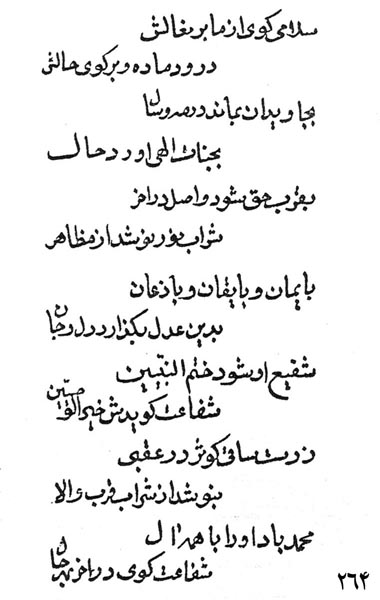 سلامی کوی از ما بر بغالتی
درود ما ده و بر کوی حالتی
بجاویدان بماند در صد و سال
بجنات الهی او در حال
بقرب حق بشود واصل در اخر
شراب نور نوشد از مظاهر
بایمان و بایقان و باذعان
بدین عدل بکذارد دل و جان
شفیع او بشود ختم النبیین
شفاعت کویدش خیر الوصیین
ز دست ساقی کوثر در عقبی
بنوشد از شراب قرب و الا
محمد باد او را با همه ال
شفاعت کوی در اخر بهر حال
۲۶۴